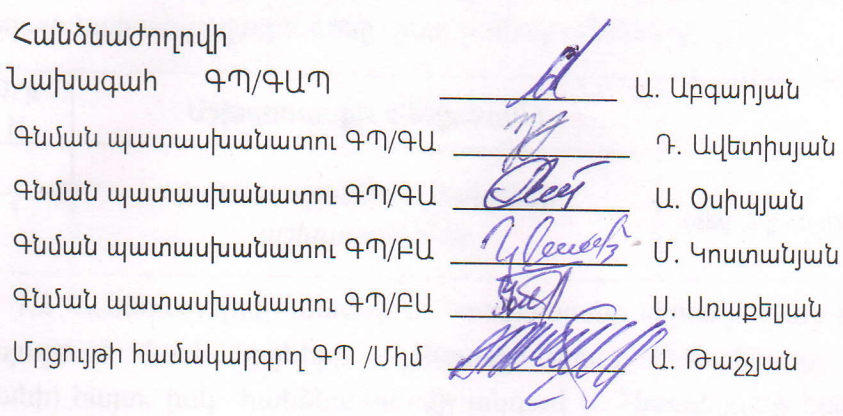 Հանձնաժողովի
Նախագահ ԳՊ/ԳԱՊ Ա. Աբգարյան
Գնման պատասխանատու ԳՊ/ԳԱ Դ. Ավետիսյան
Գնման պատասխանատու ԳՊ/ԳԱ Ա. Օսիպյան
Գնման պատասխանատու ԳՊ/ԲԱ Մ. Կոստանյան
Գնման պատասխանատու ԳՊ/ԲԱ Ս. Առաքելյան
Մրցույթի համակարգող ԳՊ /Միմ Ա. Թաշչյան